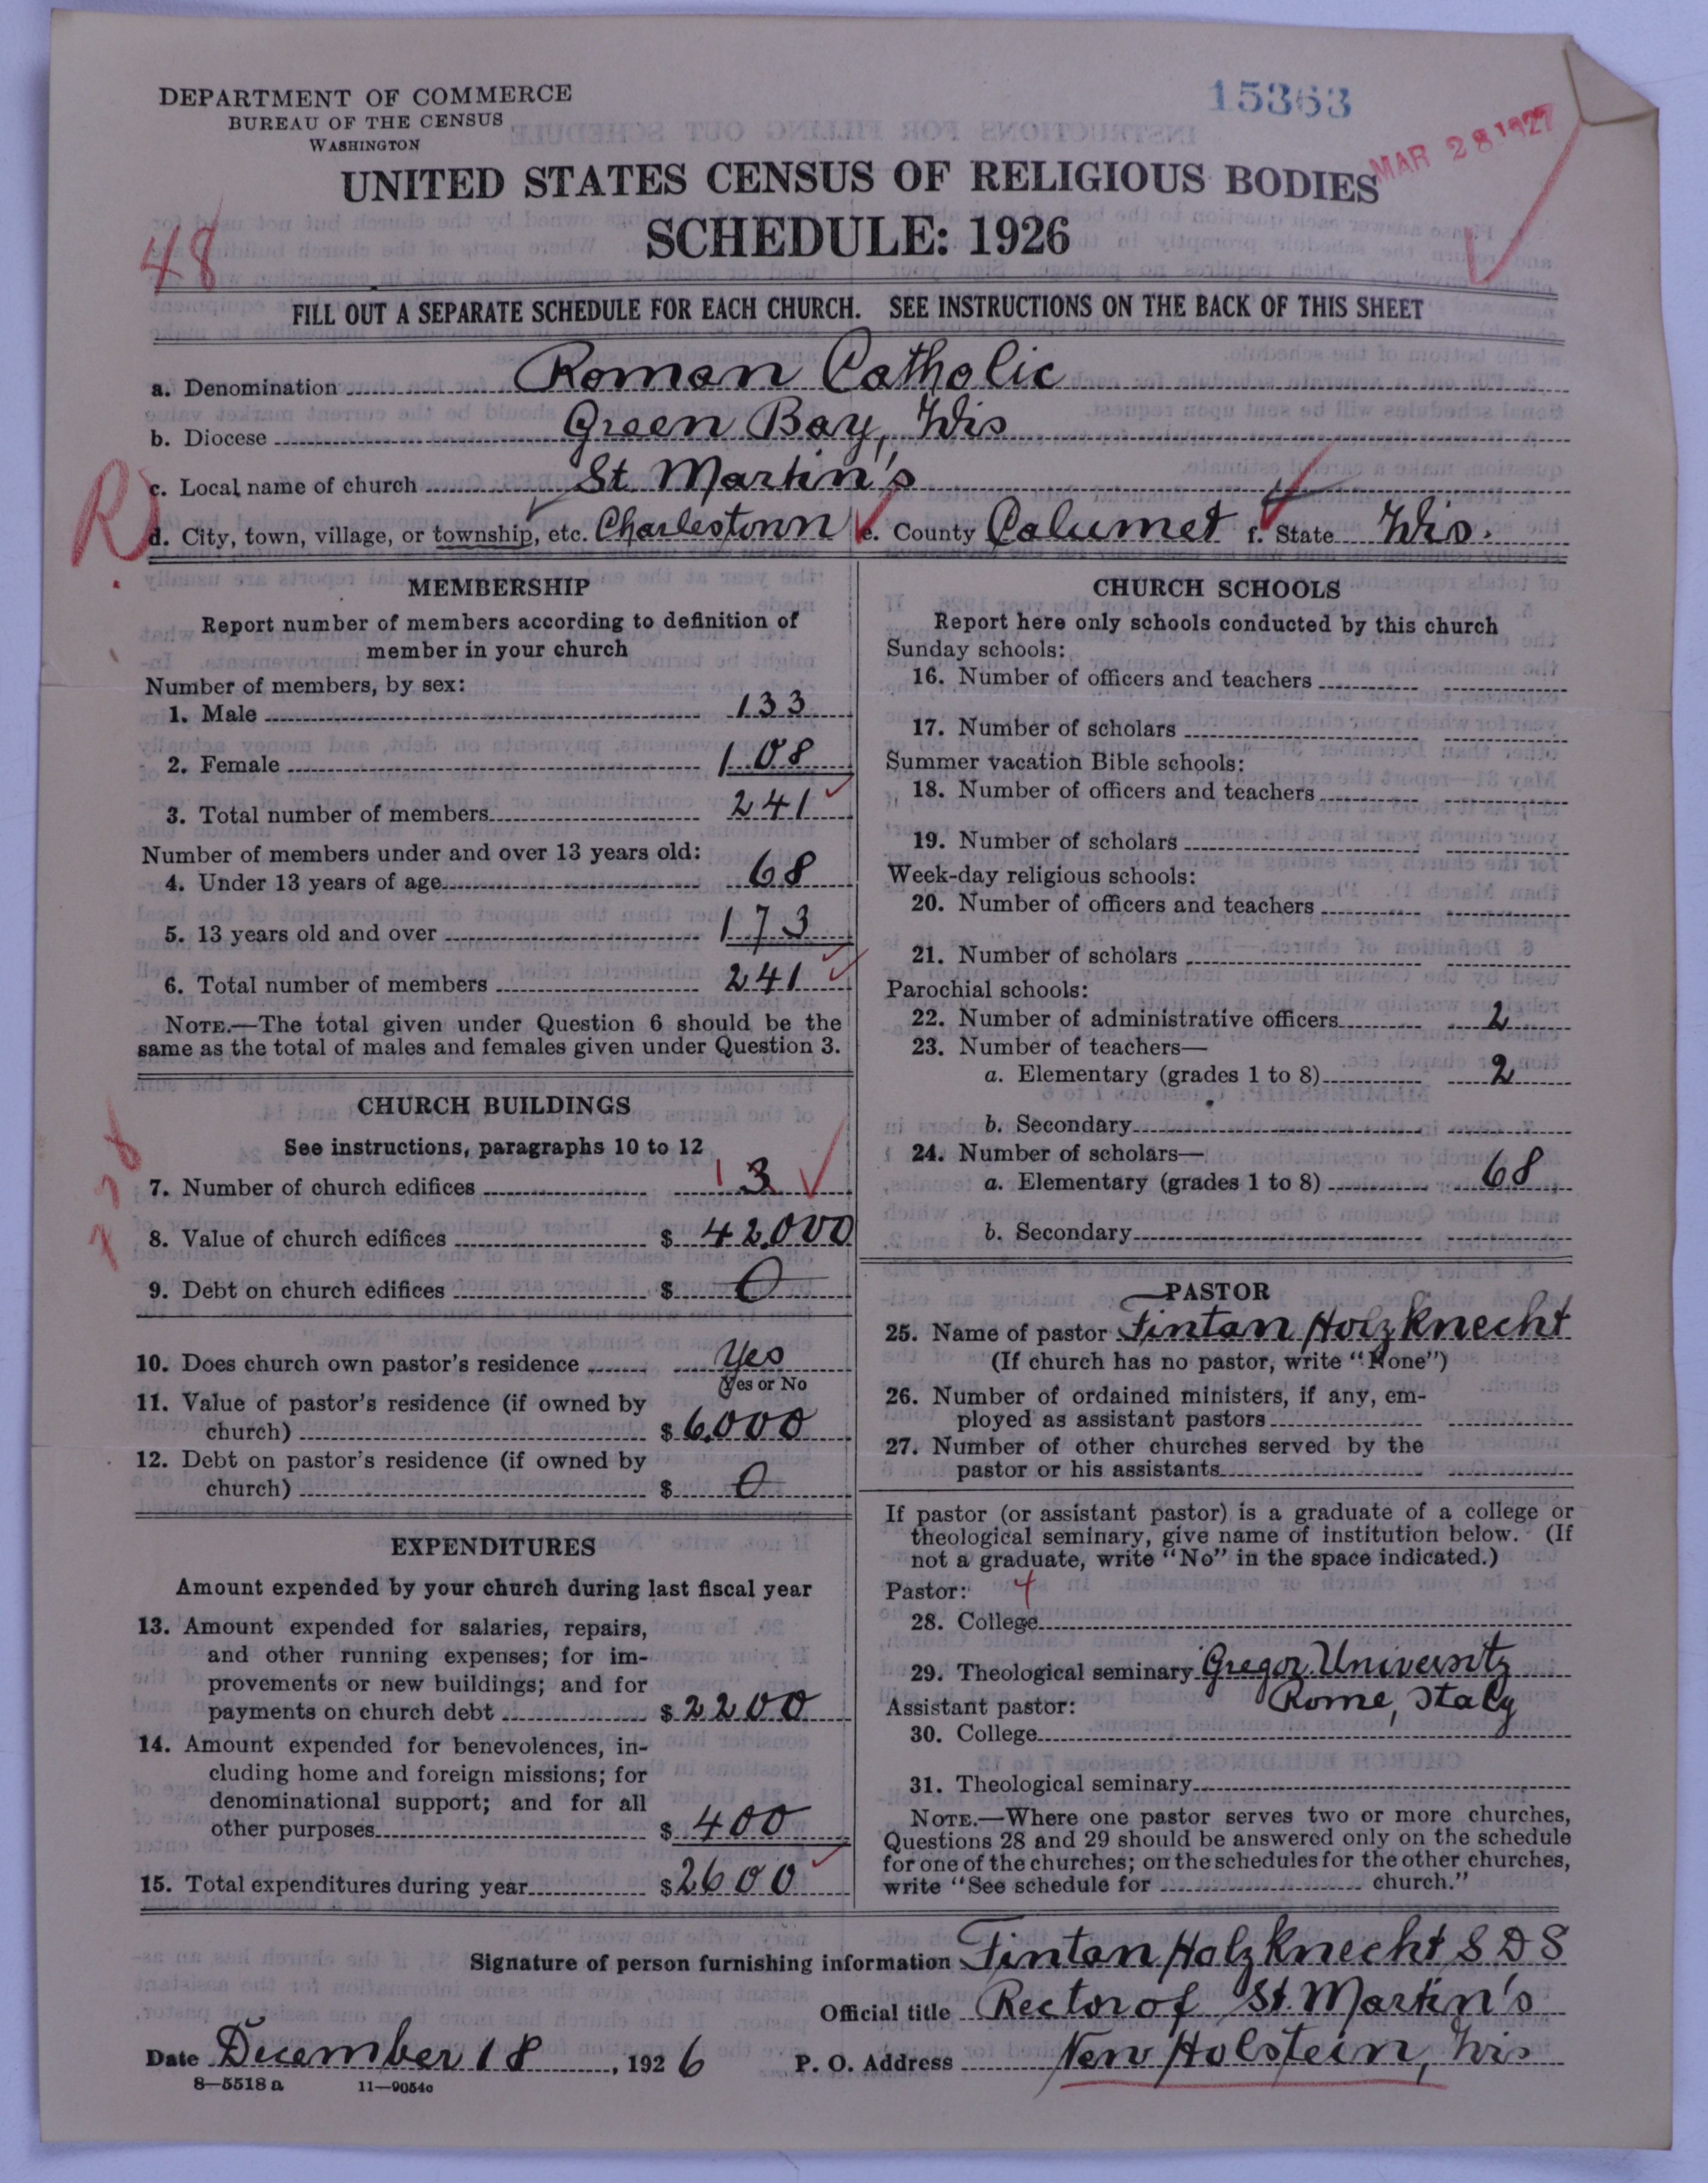 DEPARTMENT OF COMMERCE
BUREAU OF THE CENSUS
WASHINGTON
15363
MAR 28 1927
UNITED STATES CENSUS OF RELIGIOUS BODIES
SCHEDULE: 1926
48
FILL OUT A SEPARATE SCHEDULE FOR EACH CHURCH. SEE INSTRUCTIONS ON THE BACK OF THIS SHEET
a. Denomination Roman Catholic
b. Diocese Green Bay, Wis
c. Local name of church St. Martin's
R
d. City, town, village, or township, etc. Charlestown e. County Calumet f. State Wis.
MEMBERSHIP
Report number of members according to definition of
member in your church
Number of members, by sex:
1. Male 133
2. Female 108
3. Total number of members 241
Number of members under and over 13 years old:
4. Under 13 years of age 68
5. 13 years old and over 173
6. Total number of members 241
NOTE.—The total given under Question 6 should be the
same as the total of males and females given under Question 3.
CHURCH BUILDINGS
See instructions, paragraphs 10 to 12
7. Number of church edifices 1 3
8. Value of church edifices $ 42,000
9. Debt on church edifices $ 0
10. Does church own pastor's residence Yes
(Yes or No
11. Value of pastor's residence (if owned by
church) $ 6,000
12. Debt on pastor's residence (if owned by
church) $ 0
EXPENDITURES
Amount expended by your church during last fiscal year
13. Amount expended for salaries, repairs,
and other running expenses; for im-
provements or new buildings; and for
payments on church debt $ 2200
14. Amount expended for benevolences, in-
cluding home and foreign missions; for
denominational support; and for all
other purposes $ 400
15. Total expenditures during year $ 2600
CHURCH SCHOOLS
Report here only schools conducted by this church
Sunday schools:
16. Number of officers and teachers
17. Number of scholars
Summer vacation Bible schools:
18. Number of officers and teachers
19. Number of scholars
Week-day religious schools:
20. Number of officers and teachers
21. Number of scholars
Parochial schools:
22. Number of administrative officers 2
23. Number of teachers—
a. Elementary (grades 1 to 8) 2
b. Secondary
24. Number of scholars—
a. Elementary (grades 1 to 8) 68
b. Secondary
PASTOR
25. Name of pastor Fintan Holzknecht
(If church has no pastor, write "None")
26. Number of ordained ministers, if any, em-
ployed as assistant pastors
27. Number of other churches served by the
pastor or his assistants
If pastor (or assistant pastor) is a graduate of a college or
theological seminary, give name of institution below. (If
not a graduate, write "No" in the space indicated.)
Pastor: 4
28. College
29. Theological seminary Gregor. University
Assistant pastor: Rome, Italy
30. College
31. Theological seminary
NOTE.—Where one pastor serves two or more churches,
Questions 28 and 29 should be answered only on the schedule
for one of the churches; on the schedules for the other churches,
write "See schedule for church."
Signature of person furnishing information Fintan Holzknecht S D S
Official title Rector of St. Martin's
Date December 18, 1926 P. O. Address New Holstein, Wis
8—5518 a 11—9054c